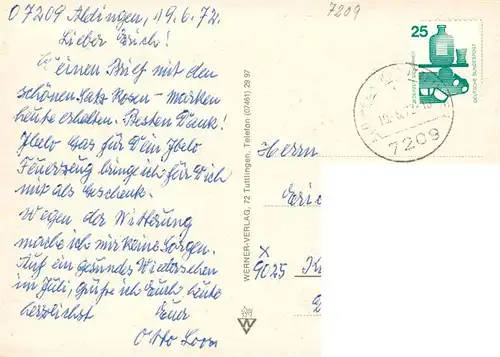 D 7209 Aldingen, 19.6.72.
7209
Lieber Erich!
Deinen Brief mit den
schönen Satz Rosen-Marken
heute erhalten. Besten Dank!
Ibelo Gas für Dein Ibelo
Feuerzeug bringe ich für Dich
mit als Geschenk.
Wegen der Witterung
mache ich mir keine Sorgen.
Auf ein gesundes Wiedersehen
im Juli, grüße ich Euch heute
herzlichst Euer
Otto
WERNER-VERLAG, 72 Tuttlingen, Telefon (07461) 29 97
W
25
DEUTSCHE BUNDESPOST
7209
Herrn
Eri
x
9025